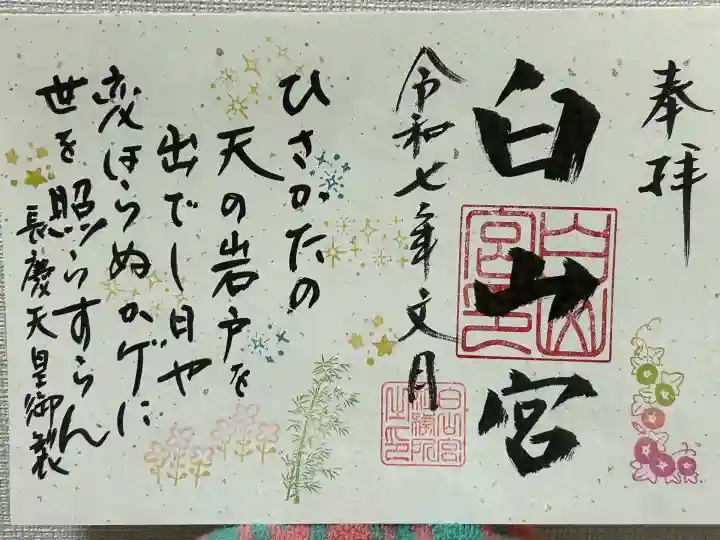 奉拝
白山宮
白山宮印
令和七年文月
白山宮
社務所
之印
ひさかたの
天の岩戸を
出でし日や
変はらぬかげに
世を照らすらん
長慶天皇御製